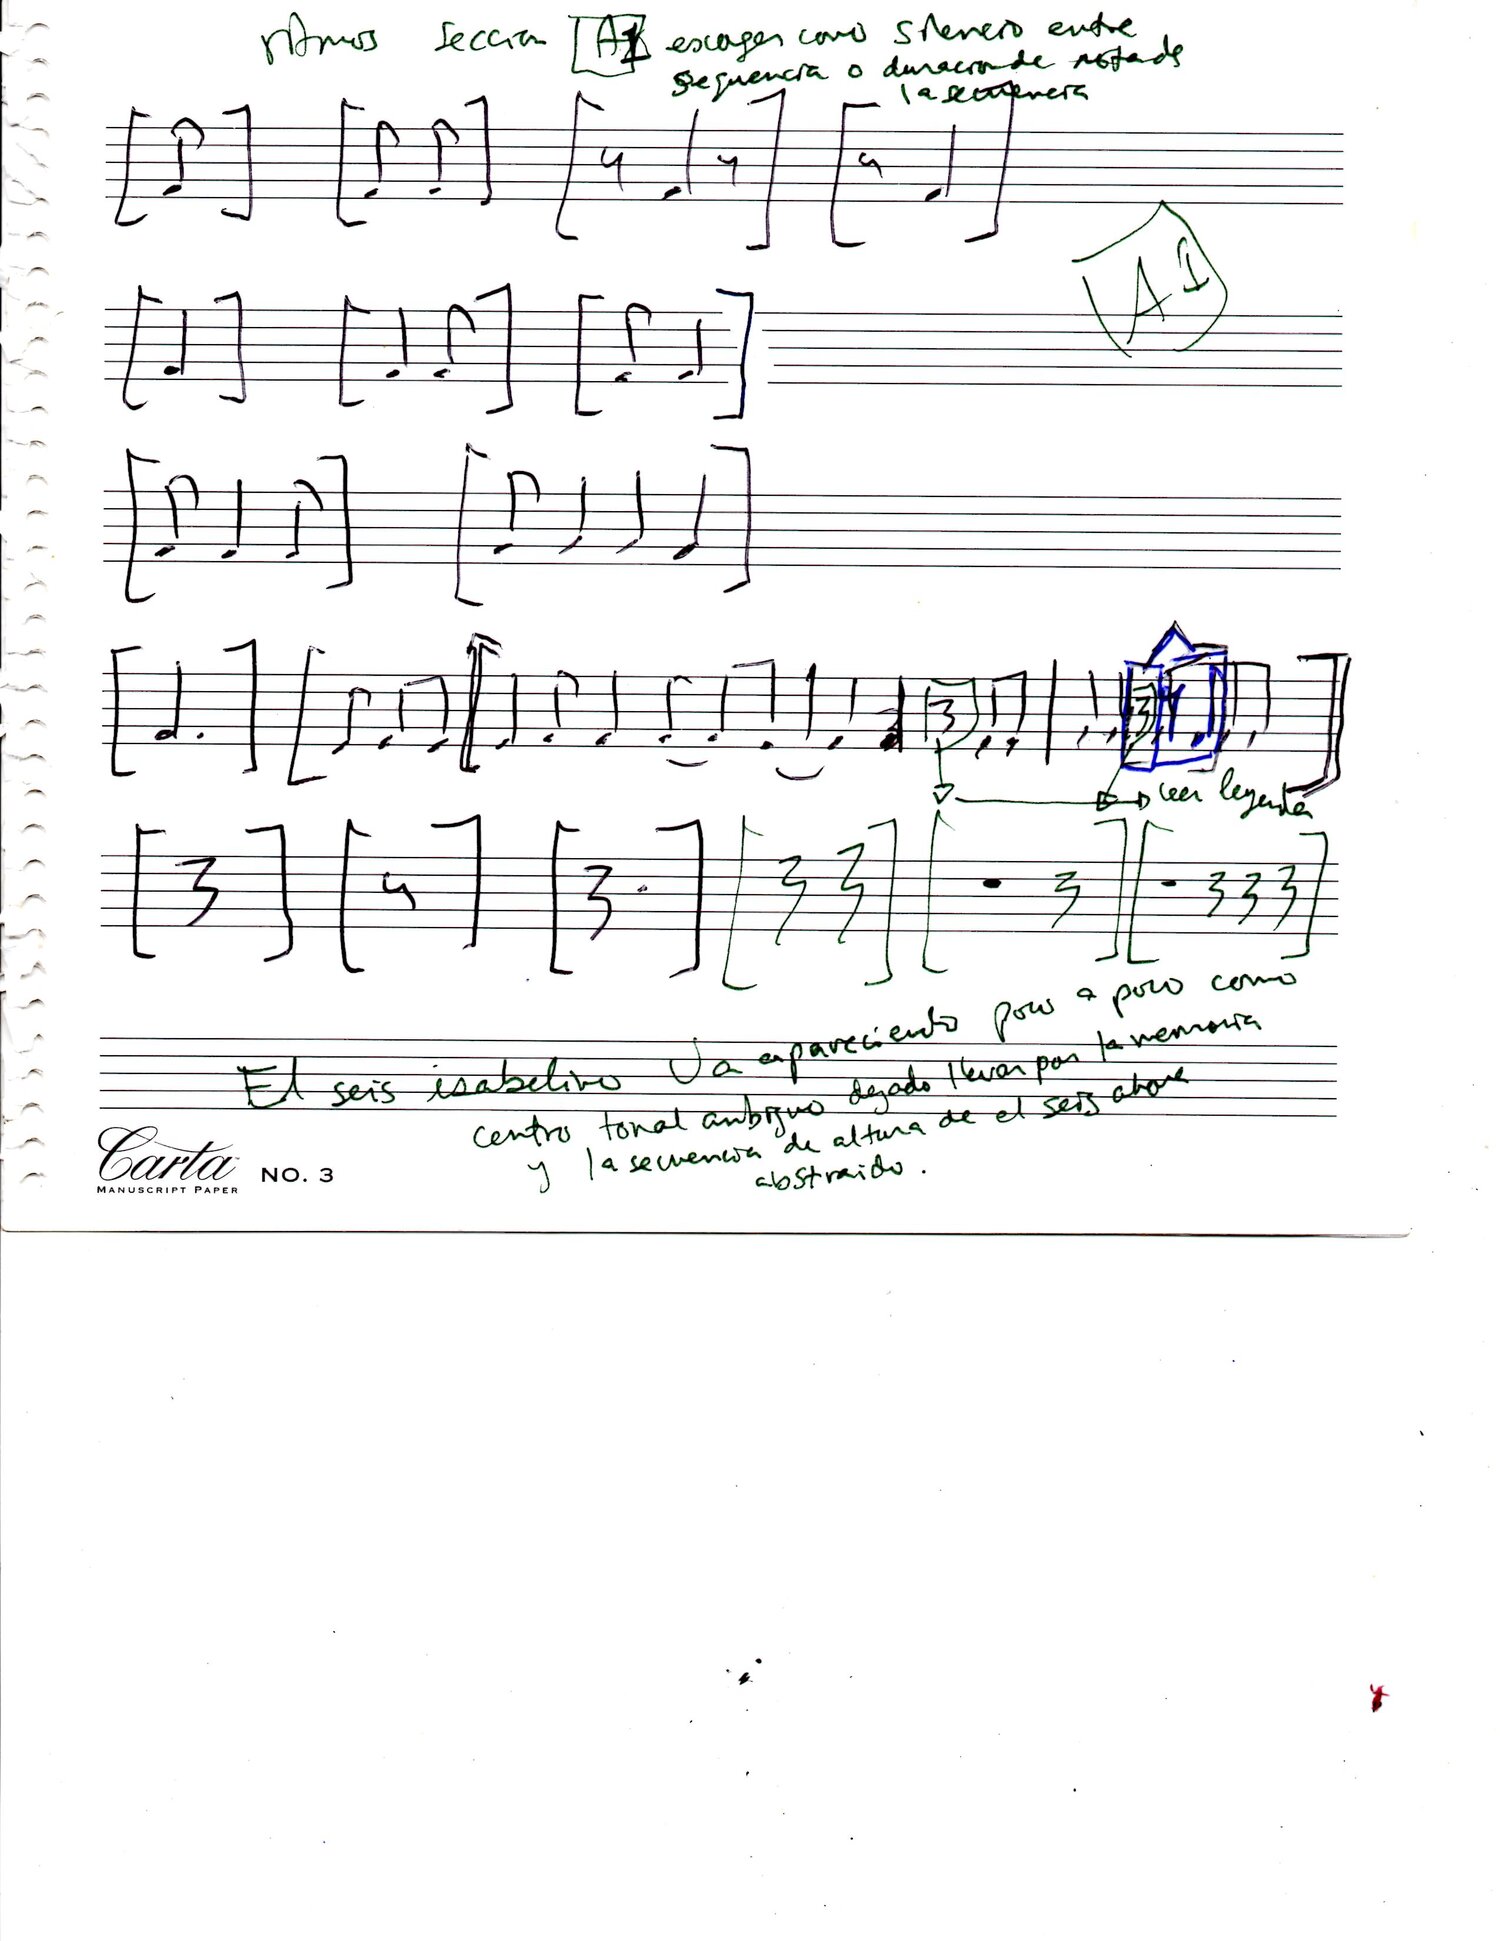 ritmos seccion A1 escoger como silencio entre
sequencia o duracion de nota de
la secuencia
A1
leer leyenda
El seis isabelino va apareciendo poco a poco como
centro tonal ambiguo dejado llevar por la memoria
y la secuencia de altura de el seis ahora
abstraido.
Carta NO. 3
MANUSCRIPT PAPER